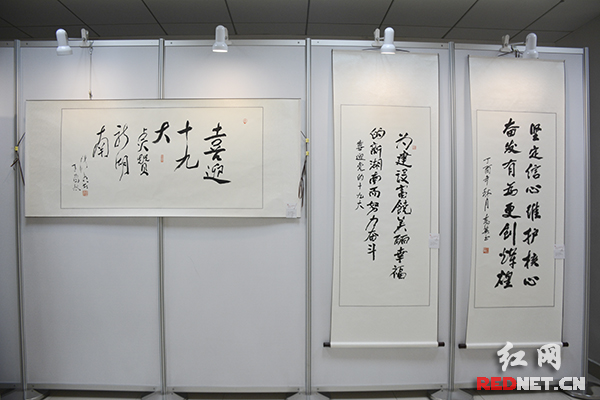 喜迎
十九
大
点赞
新湖
南
为建设富饶美丽幸福
的新湖南而努力奋斗
喜迎党的十九大
坚定信心维护核心
奋发有为更创辉煌
丁酉年秋月
红网
REDNET.CN